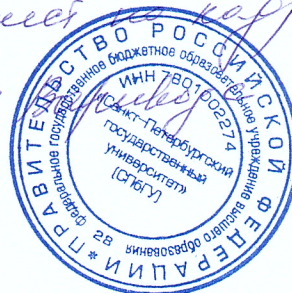 ПРАВИТЕЛЬСТВО РОССИЙСКОЙ ФЕДЕРАЦИИ *
федеральное государственное бюджетное образовательное учреждение высшего образования
28
ИНН 7801002274
"Санкт-Петербургский
государственный
университет"
(СПбГУ)